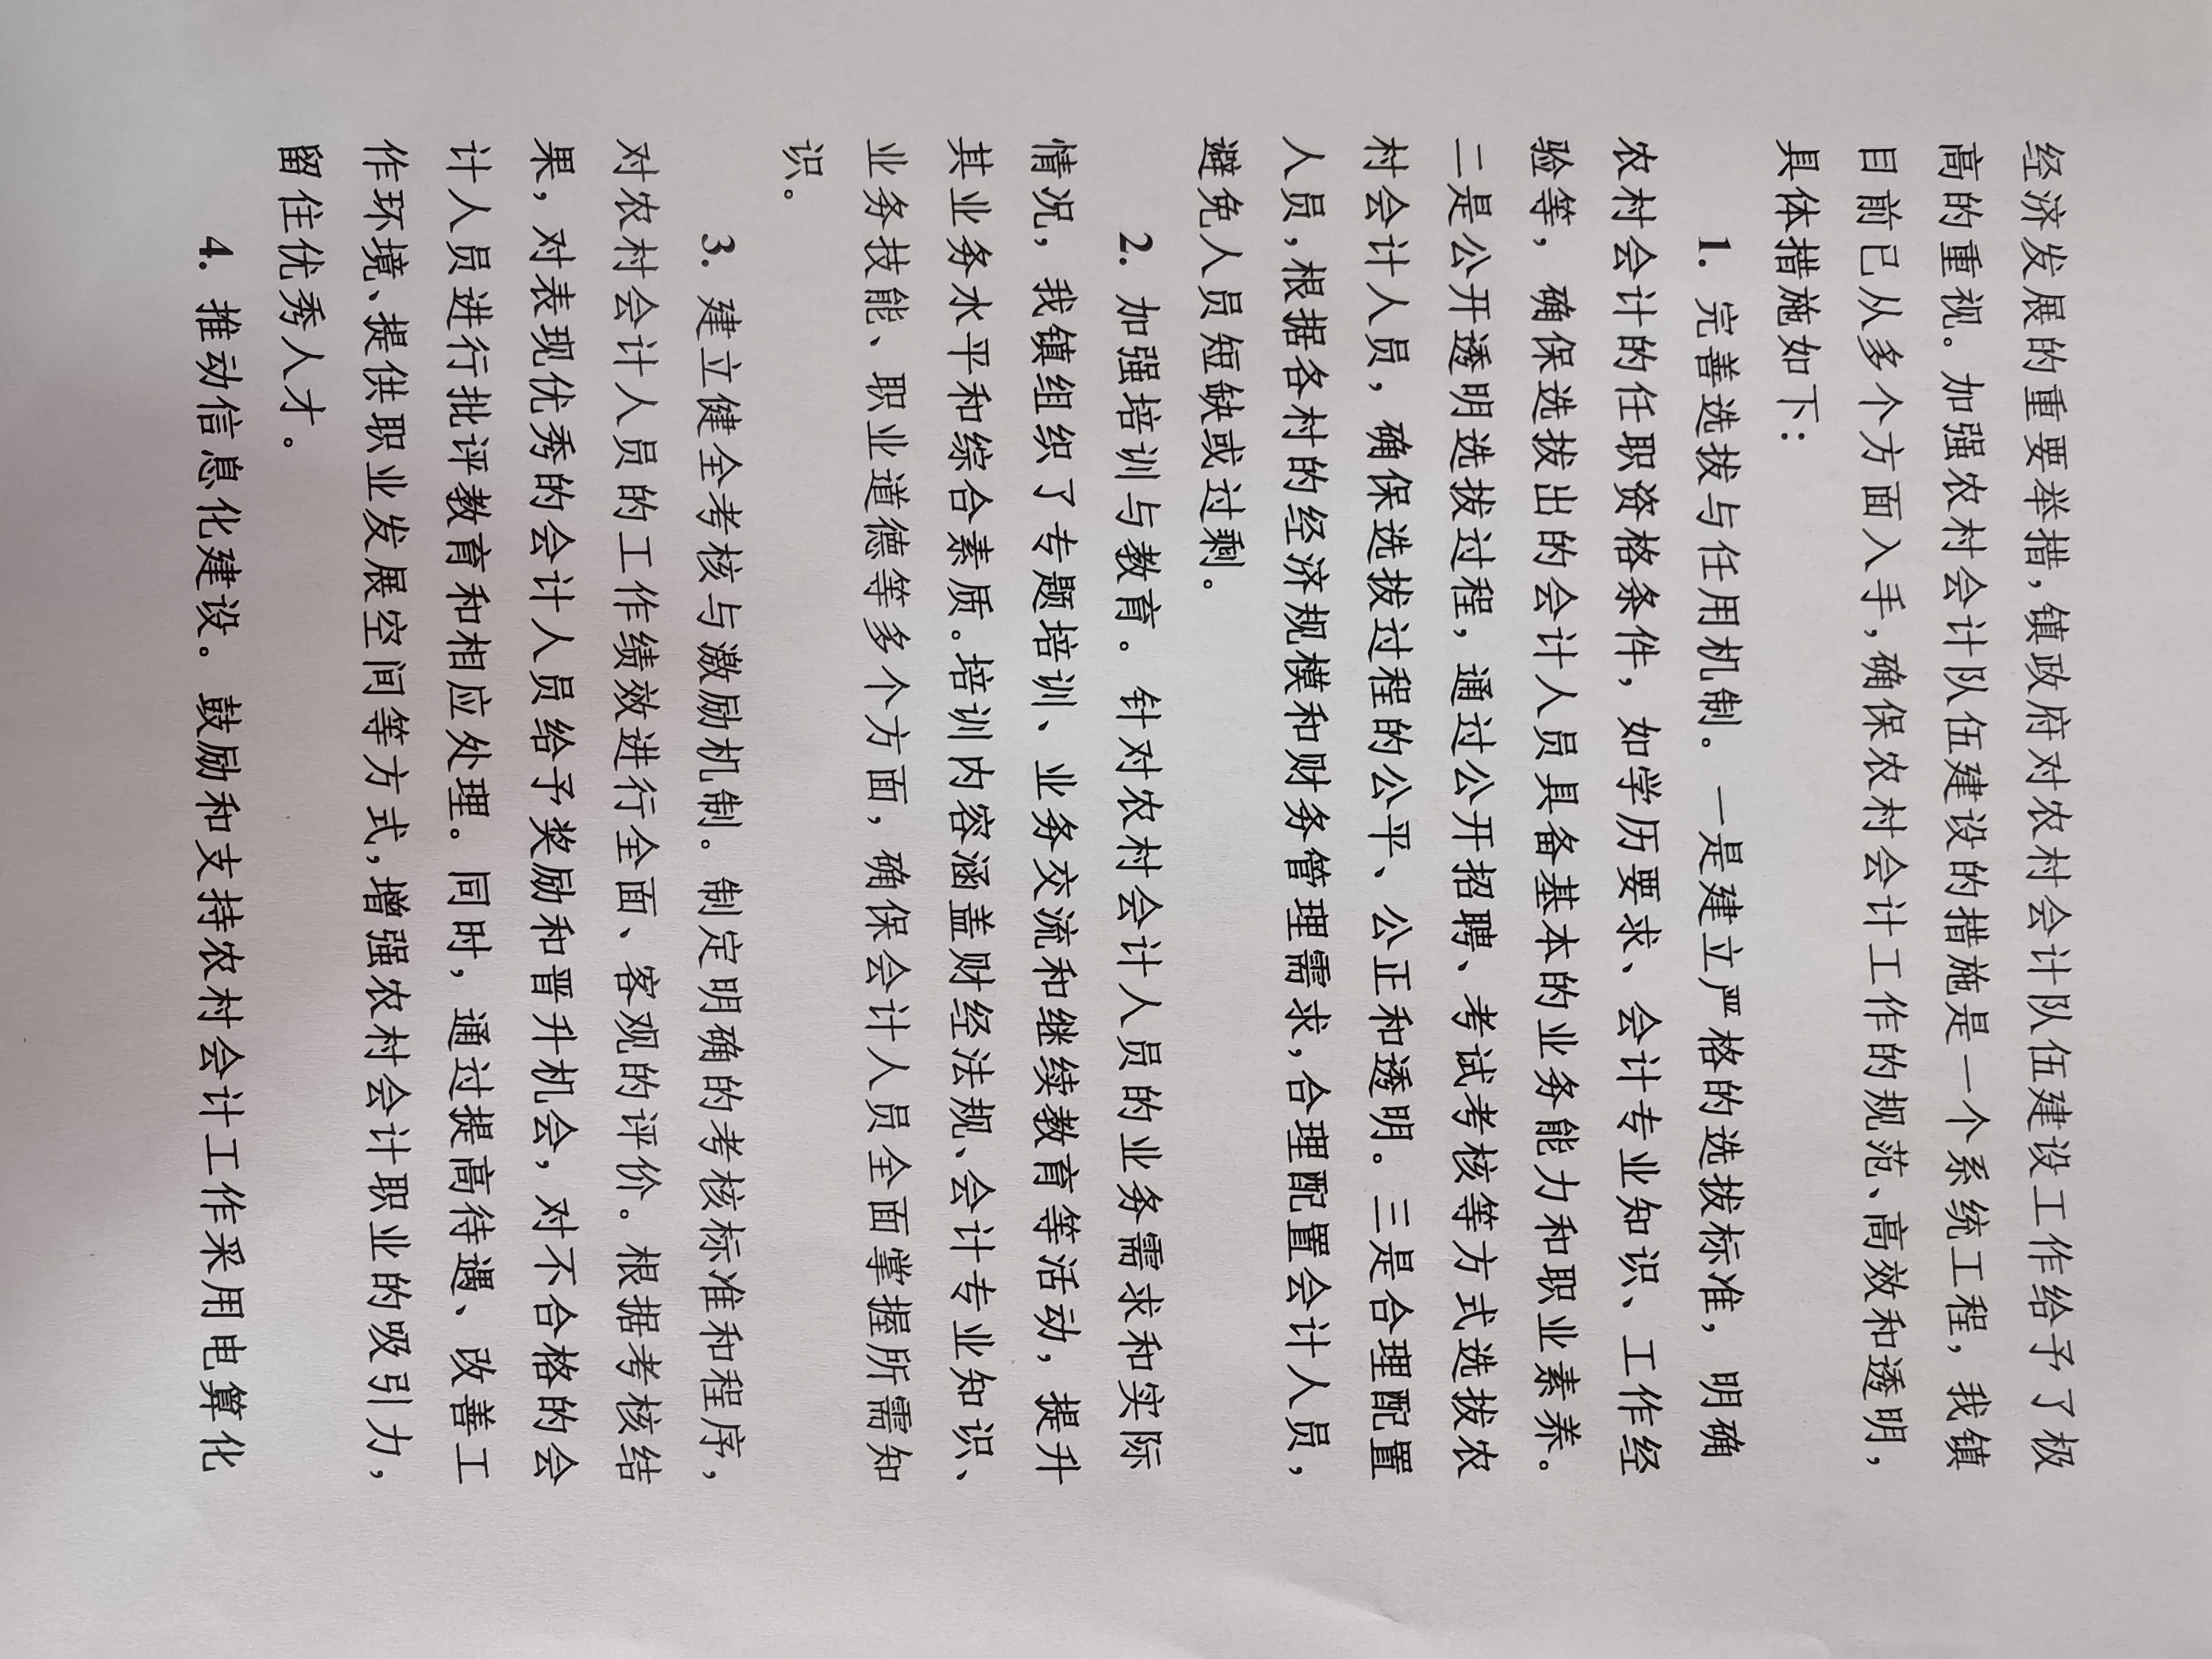 经济发展的重要举措，镇政府对农村会计队伍建设工作给予了极
高的重视。加强农村会计队伍建设的措施是一个系统工程，我镇
目前已从多个方面入手，确保农村会计工作的规范、高效和透明，
具体措施如下：
1. 完善选拔与任用机制。一是建立严格的选拔标准，明确
农村会计的任职资格条件，如学历要求、会计专业知识、工作经
验等，确保选拔出的会计人员具备基本的业务能力和职业素养。
二是公开透明选拔过程，通过公开招聘、考试考核等方式选拔农
村会计人员，确保选拔过程的公平、公正和透明。三是合理配置
人员，根据各村的经济规模和财务管理需求，合理配置会计人员，
避免人员短缺或过剩。
2. 加强培训与教育。针对农村会计人员的业务需求和实际
情况，我镇组织了专题培训、业务交流和继续教育等活动，提升
其业务水平和综合素质。培训内容涵盖财经法规、会计专业知识、
业务技能、职业道德等多个方面，确保会计人员全面掌握所需知
识。
3. 建立健全考核与激励机制。制定明确的考核标准和程序，
对农村会计人员的工作绩效进行全面、客观的评价。根据考核结
果，对表现优秀的会计人员给予奖励和晋升机会，对不合格的会
计人员进行批评教育和相应处理。同时，通过提高待遇、改善工
作环境、提供职业发展空间等方式，增强农村会计职业的吸引力，
留住优秀人才。
4. 推动信息化建设。鼓励和支持农村会计工作采用电算化